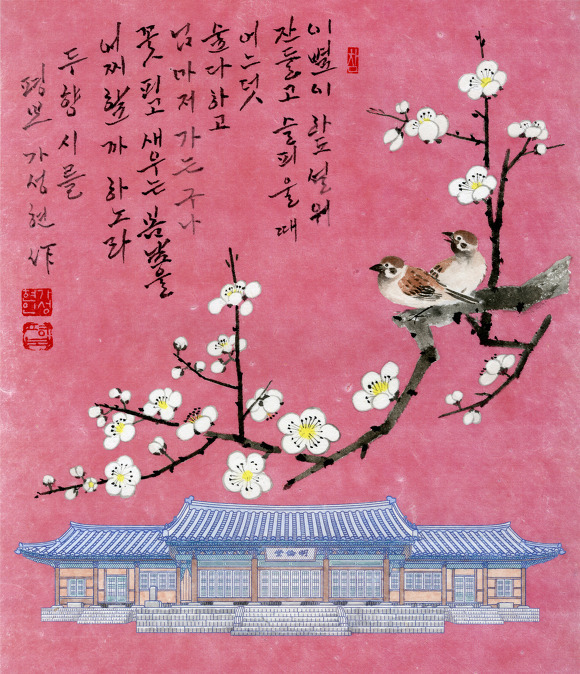 이별이 하도 설워
잔 들고 슬피 울 때
어느덧
술 다하고
님 마저 가는구나
꽃 피고 새 우는 봄날을
어찌 할까 하노라
두향 시를
평보 가성현 作
가성현인
明倫堂